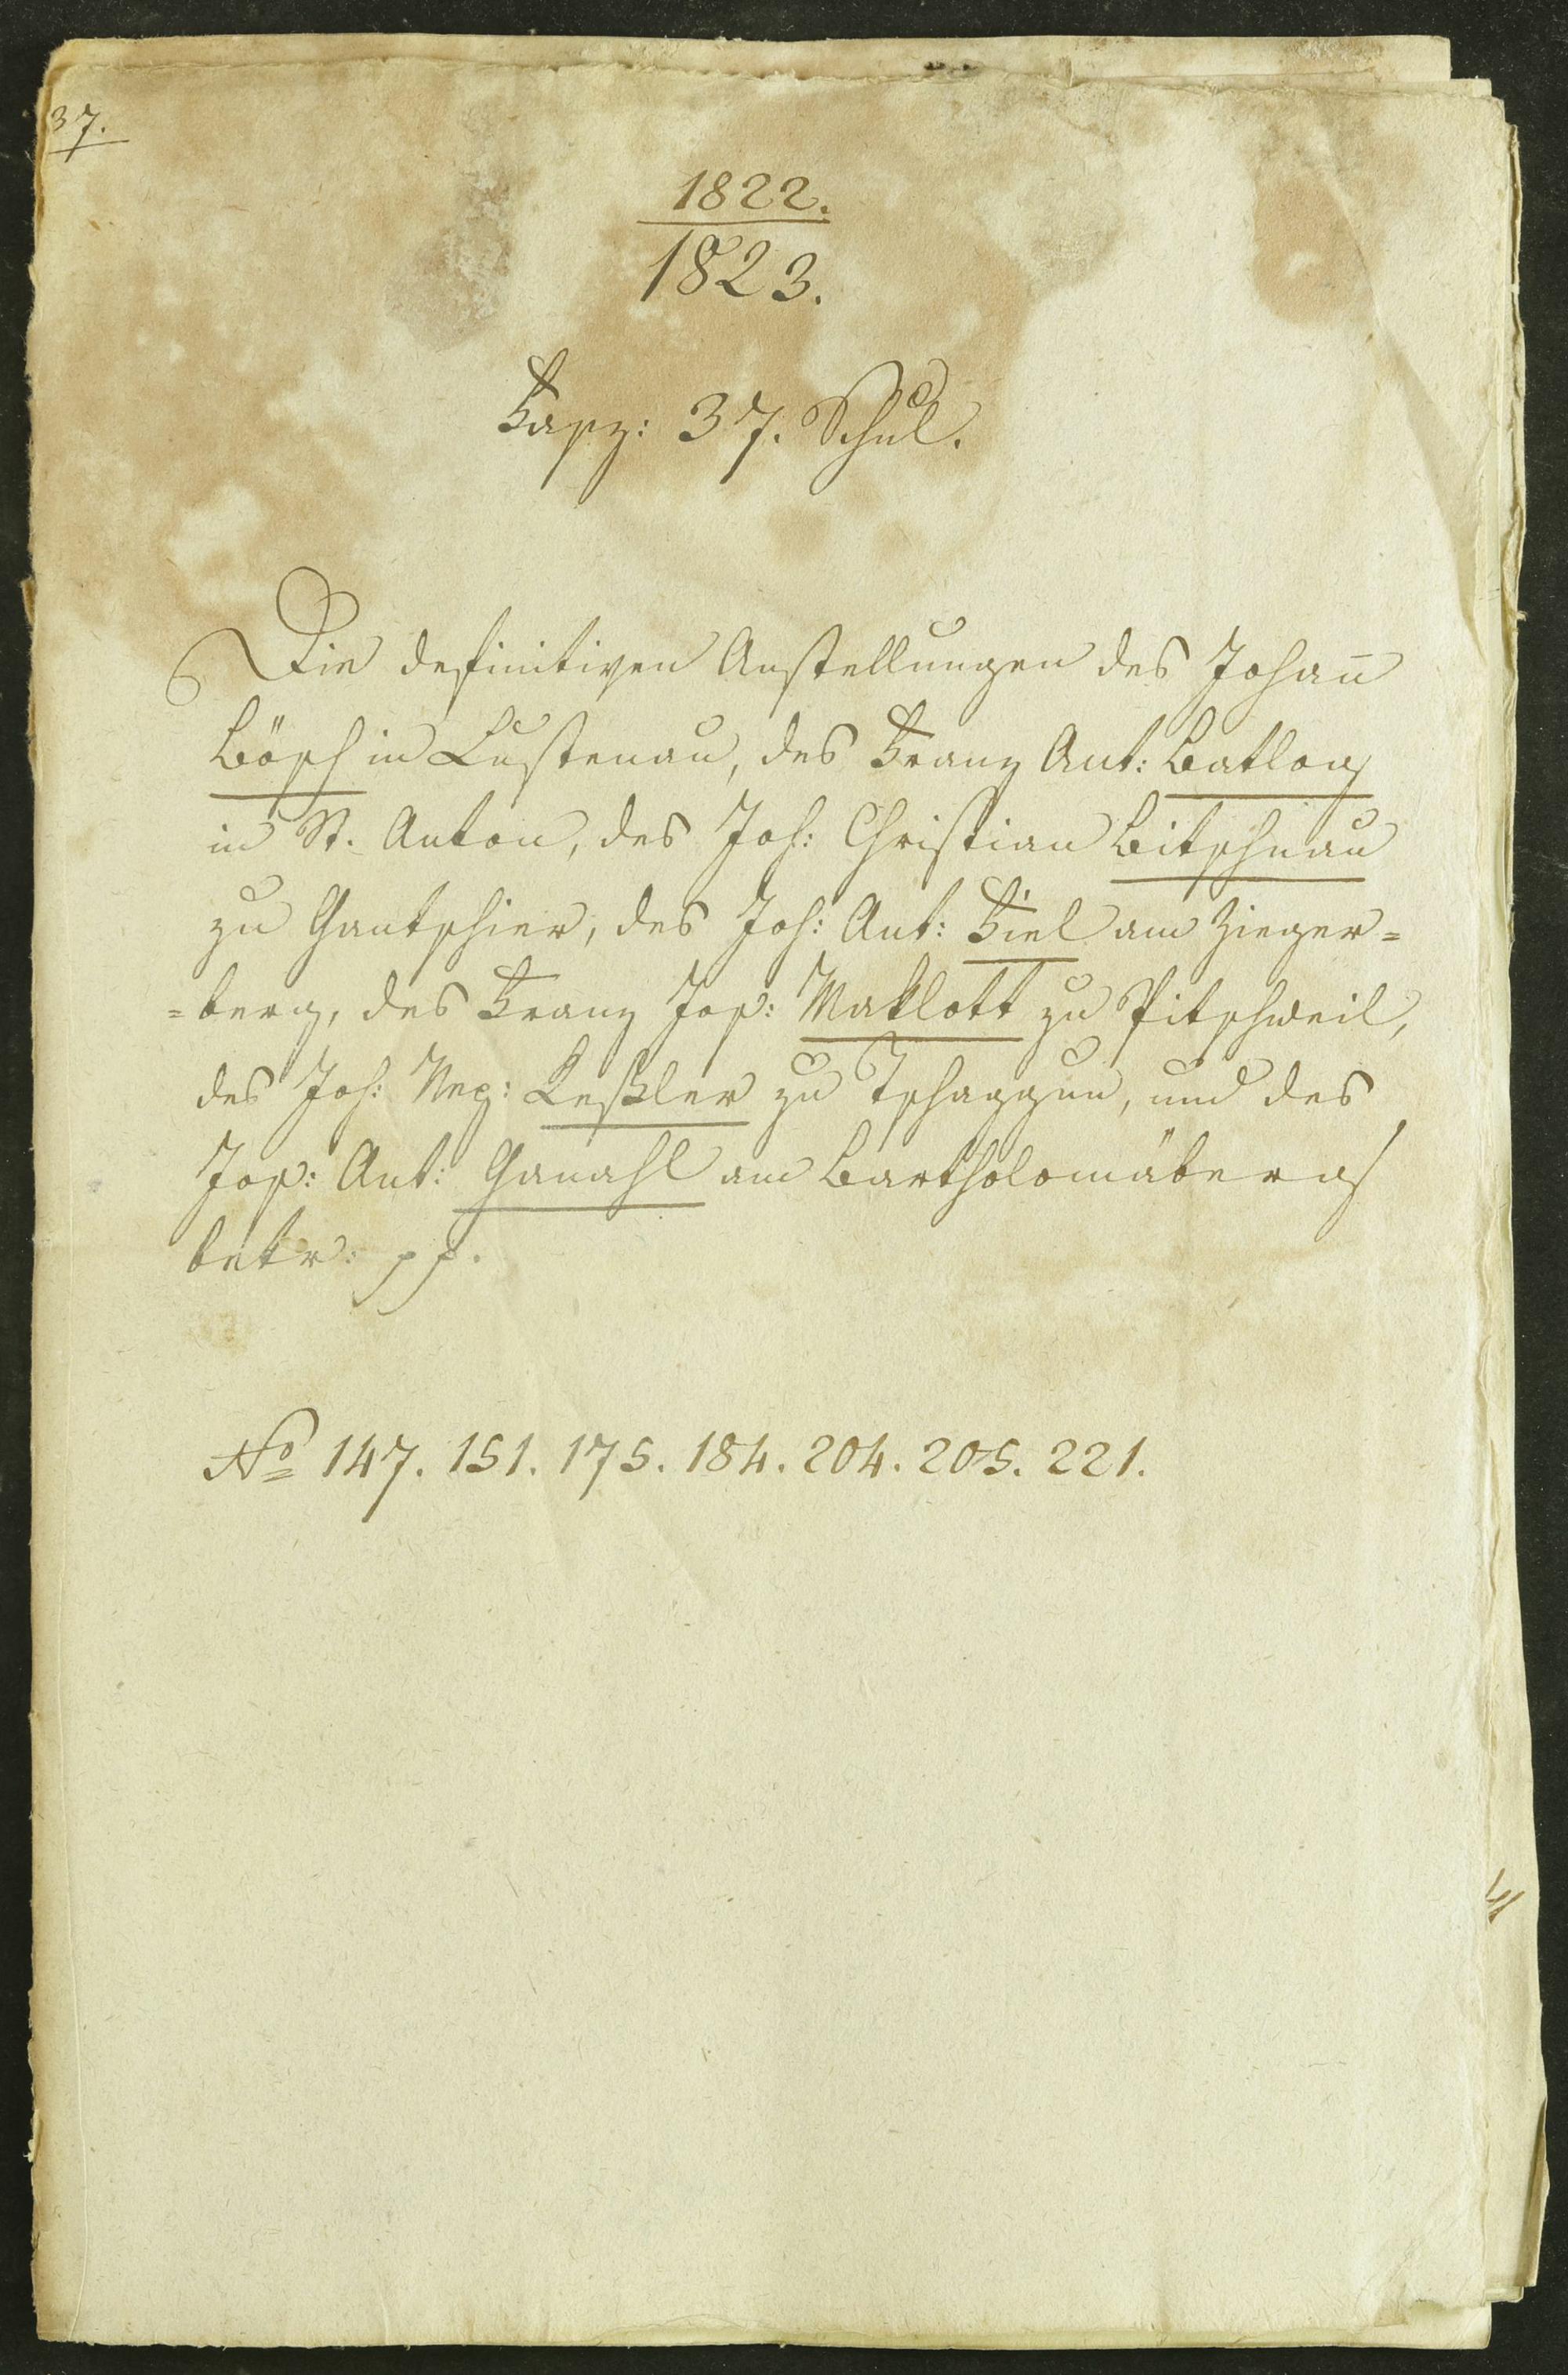 37.
1822.
1823.
Fasz: 37. Schul.
Die definitiven Anstellungen des Johan̄
Bösch in Lustenau, des Franz Ant: Batlog
in St. Anton, des Joh: Christian Bitschnau
zu Gantschier, des Joh: Ant: Fiel am Zieger=
=berg, des Franz Jos: Maklott zu Vitschweil,
des Joh: Nep: Keßler zu Tschaggun, und des
Jos: Ant: Ganahl am Bartholomäberg
betr: pp.
No 147. 151. 175. 184. 204. 205. 221.